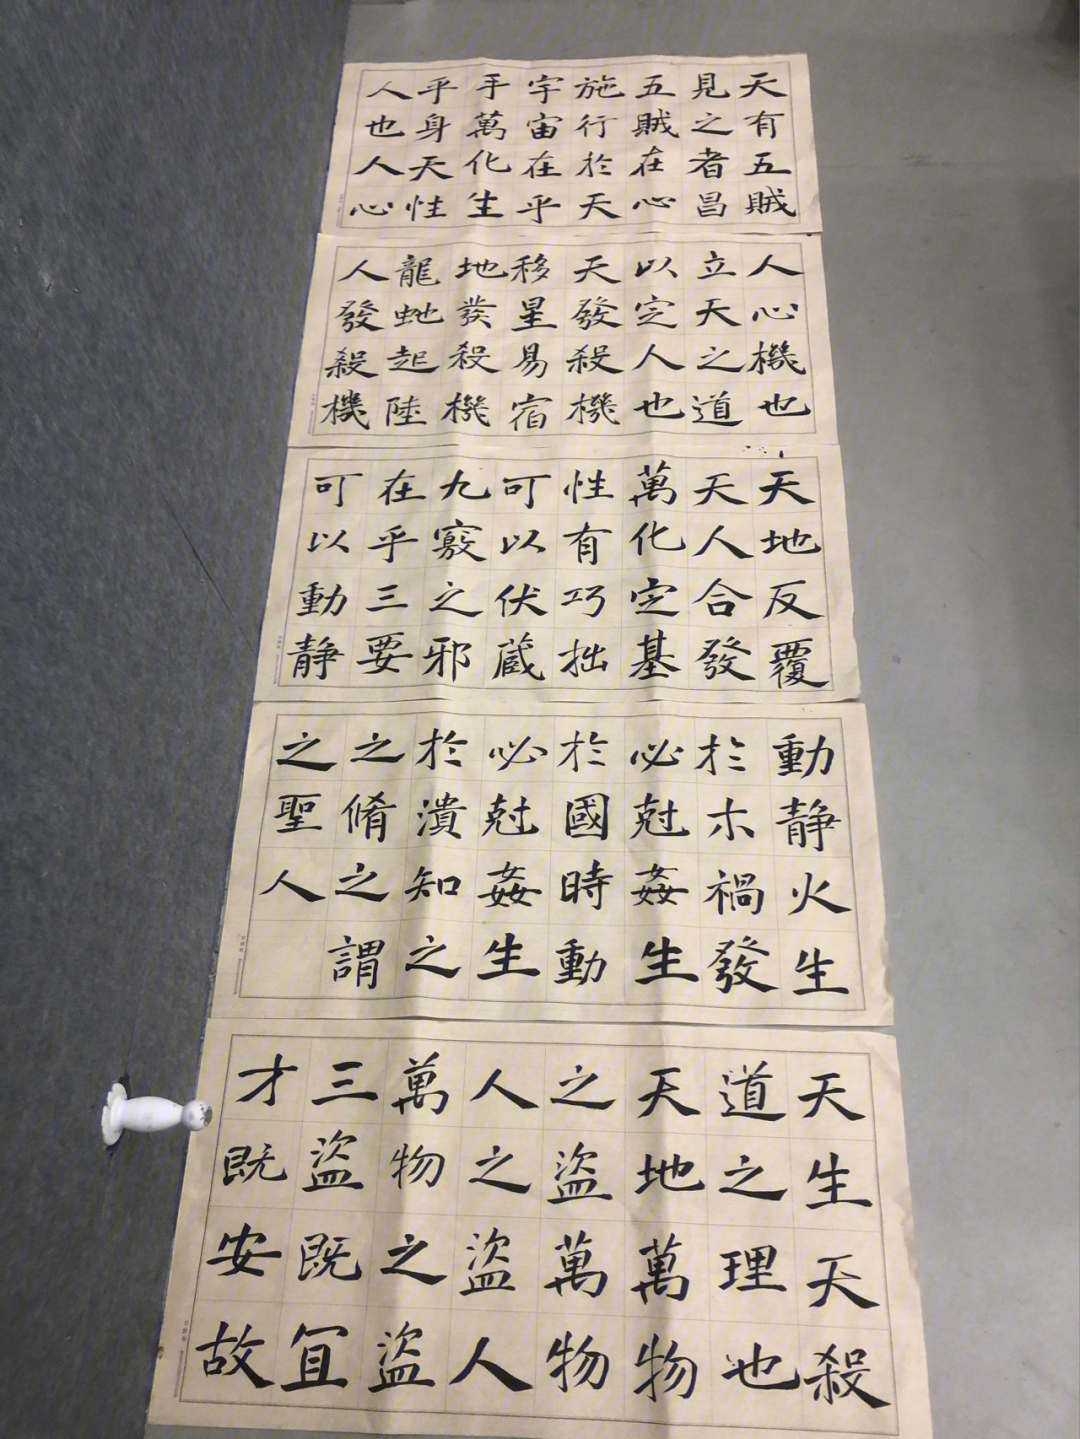 天有五賊
見之者昌
五賊在心
施行於天
宇宙在乎
手萬化生
乎身天性
人也人心
人心機也
立天之道
以定人也
天發殺機
移星易宿
地發殺機
龍虵起陸
人發殺機
天地反覆
天人合發
萬化定基
性有巧拙
可以伏蔵
九竅之邪
在乎三要
可以動静
動静火生
於木禍發
必尅姦生
於國時動
必尅姦生
於潰知之
之脩之謂
之聖人
天生天殺
道之理也
天地萬物
之盗萬物
人之盗人
萬物之盗
三盗既宜
才既安故